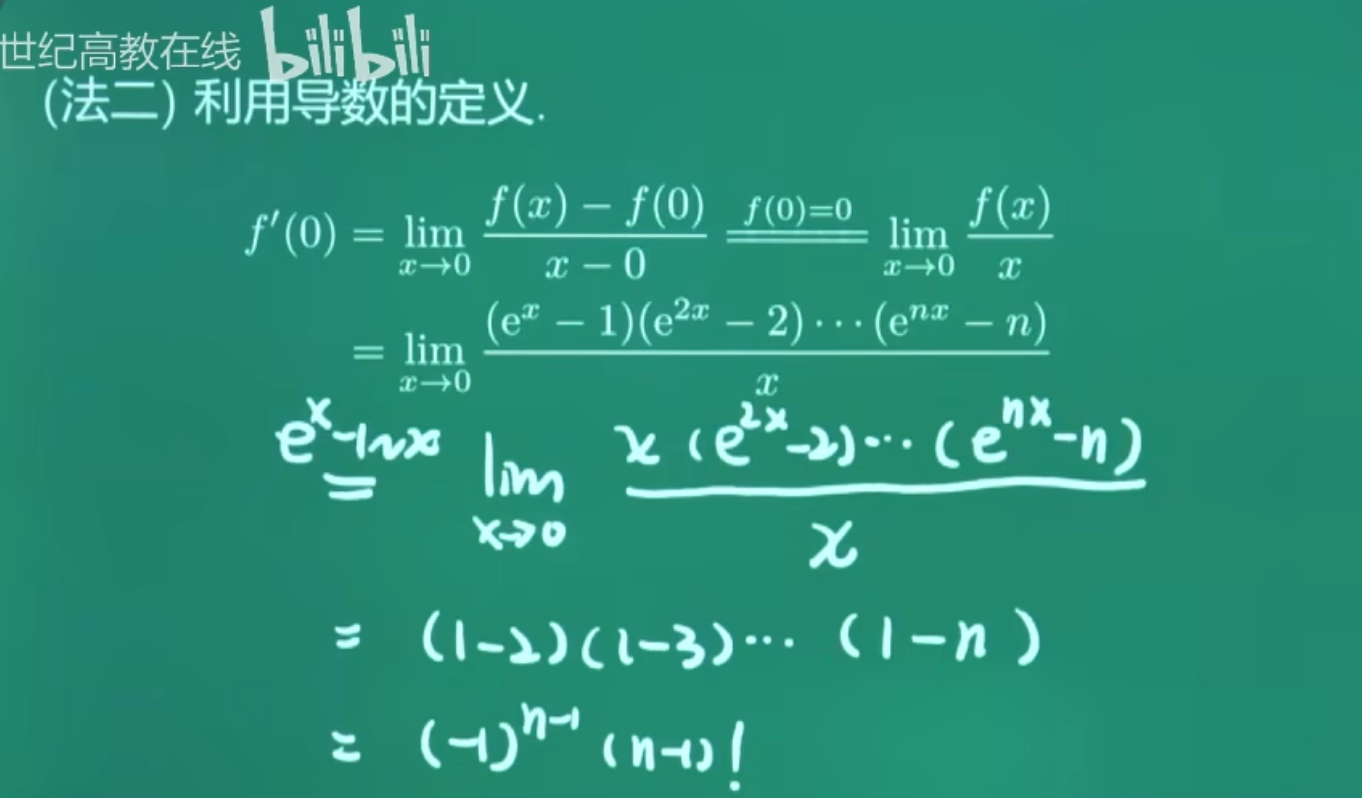 世纪高教在线 bilibili
(法二) 利用导数的定义.
f′(0) = lim_{x→0} \frac{f(x) − f(0)}{x − 0} \xlongequal{f(0)=0} lim_{x→0} \frac{f(x)}{x}
= lim_{x→0} \frac{(e^x − 1)(e^{2x} − 2)⋯(e^{nx} − n)}{x}
\xlongequal{e^x-1~x} lim_{x→0} \frac{x(e^{2x}-2)⋯(e^{nx}-n)}{x}
= (1-2)(1-3)⋯(1-n)
= (-1)^{n-1} (n-1)!